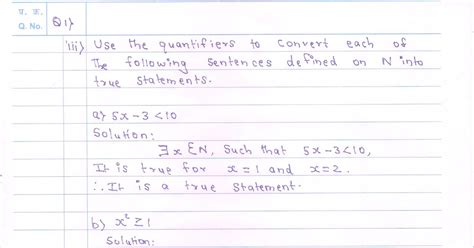 प्र. क्र.
Q. No.
Q 1)
iii) Use the quantifiers to convert each of
The following sentences defined on N into
true statements.
a) 5x-3<10
Solution:
∃x∈N, such that 5x-3<10,
It is true for x=1 and x=2.
∴ It is a true statement.
b) x² ≥ 1
Solution: